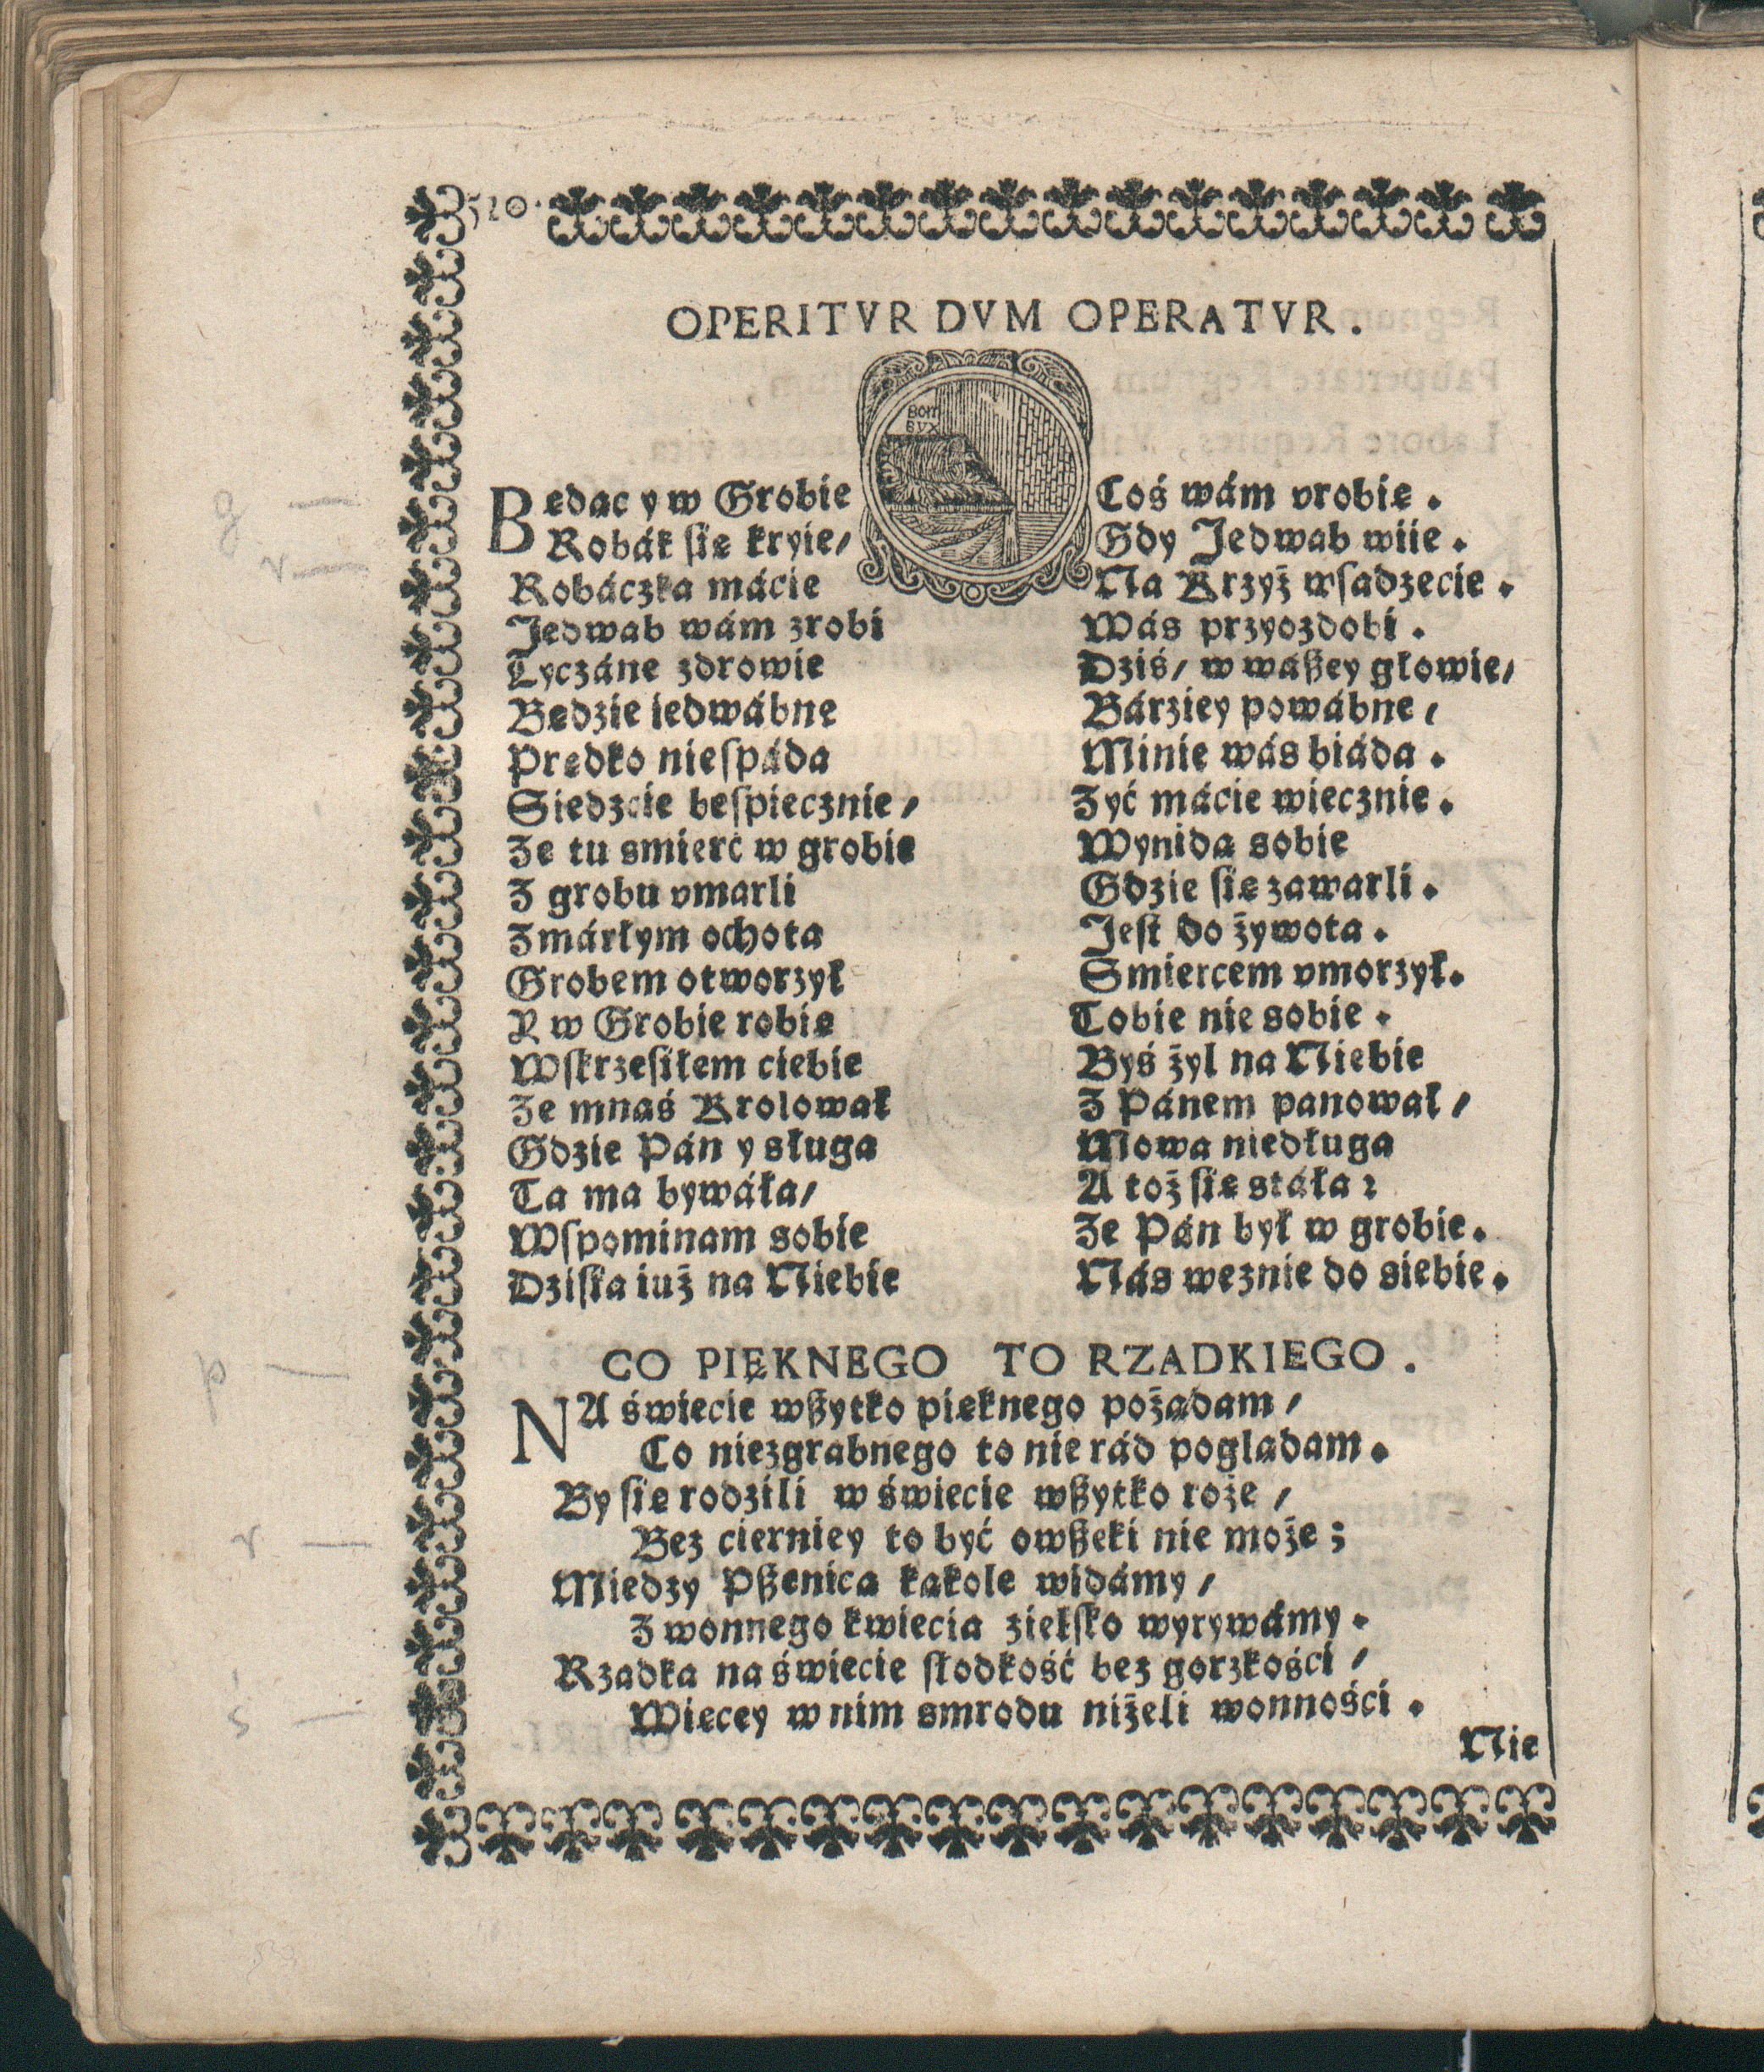 520.
OPERITVR DVM OPERATVR.
BOM
BYX
Będąc y w Grobie Coś wám vrobię.
Robák się kryie/ Gdy Jedwab wiie.
Robáczka mácie Na Krzyż wsadzecie.
Jedwab wám zrobi Wás przyozdobi.
Tyczáne zdrowie Dziś/ w wászey głowie/
Będzie iedwábne Bárziey powábne/
Prędko niespáda Minie wás biáda.
Siedzcie bespiecznie/ Zyć mácie wiecznie.
Ze tu smierć w grobie Wynida sobie
Z grobu vmarli Gdzie się zawarli.
Zmárłym ochota Jest do żywota.
Grobem otworzył Smiercem vmorzył.
Y w Grobie robię Tobie nie sobie.
Wskrzesiłem ciebie Byś żyl na Niebie
Ze mnąś Krolował Z Pánem panował/
Gdzie Pán y sługa Mowa niedługa
Ta ma bywáła/ A toż się stáła?
Wspominam sobie Ze Pán był w grobie.
Dziśka iuż na Niebie Nás weznie do siebie.
CO PIĘKNEGO TO RZADKIEGO.
NA świecie wszytko pięknego pożądam/
Co niezgrabnego to nie rád poglądam.
By się rodzili w świecie wszytko roże/
Bez cierniey to być owszeki nie może;
Miedzy Pszenicą kąkole widámy/
Z wonnego kwiecia zielsko wyrywámy.
Rzadka na świecie słodkość bez gorzkości/
Więcey w nim smrodu niżeli wonności.
Nie
g
v
p
r
ś